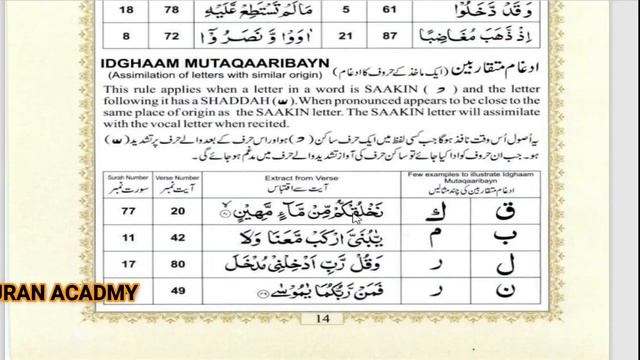 18 78 مَالَمْ تَسْتَطِعْ عَّلَيْهِ 5 61 وَقَدْ دَّخَلُوْا
8 72 اٰوَوْا وَّنَصَرُوْا 21 87 اِذْ ذَّهَبَ مُغَاضِبًا
IDGHAAM MUTAQAARIBAYN ادغام متقاربین
(Assimilation of letters with similar origin) (ایک ماخذ کے حروف کا ادغام)
This rule applies when a letter in a word is SAAKIN ( ) and the letter
following it has a SHADDAH ( ). When pronounced appears to be close to the
same place of origin as the SAAKIN letter. The SAAKIN letter will assimilate
with the vocal letter when recited.
یہ اُصول اُس وقت نافذ ہوگا جب کسی لفظ میں ایک حرف ساکن ( ) ہو اور اس کے بعد والے حرف پر تشدید ( )
ہو۔ جب ان حروف کو ادا کیا جائے تو ساکن حرف کی آواز تشدید والے حرف میں مدغم ہو جائے گی۔
Surah Number Verse Number Extract from Verse Few examples to illustrate Idghaam
Mutaqaaribayn
سورت نمبر آیت نمبر آیت سے اقتباس ادغام متقاربین کی چند مثالیں
77 20 نَخْلُقْكُّمْ مِّنْ مَّآءٍ مَّهِيْنٍ ك ق
11 42 يّٰبُنَيَّ ارْكَبْ مَّعَنَا وَلَا م ب
17 80 وَقُلْ رَّبِّ اَدْخِلْنِيْ مُدْخَلَ ر ل
49 فَمَنْ رَّبُّكُمَا يٰمُوْسٰى ر ن
URAN ACADMY
14